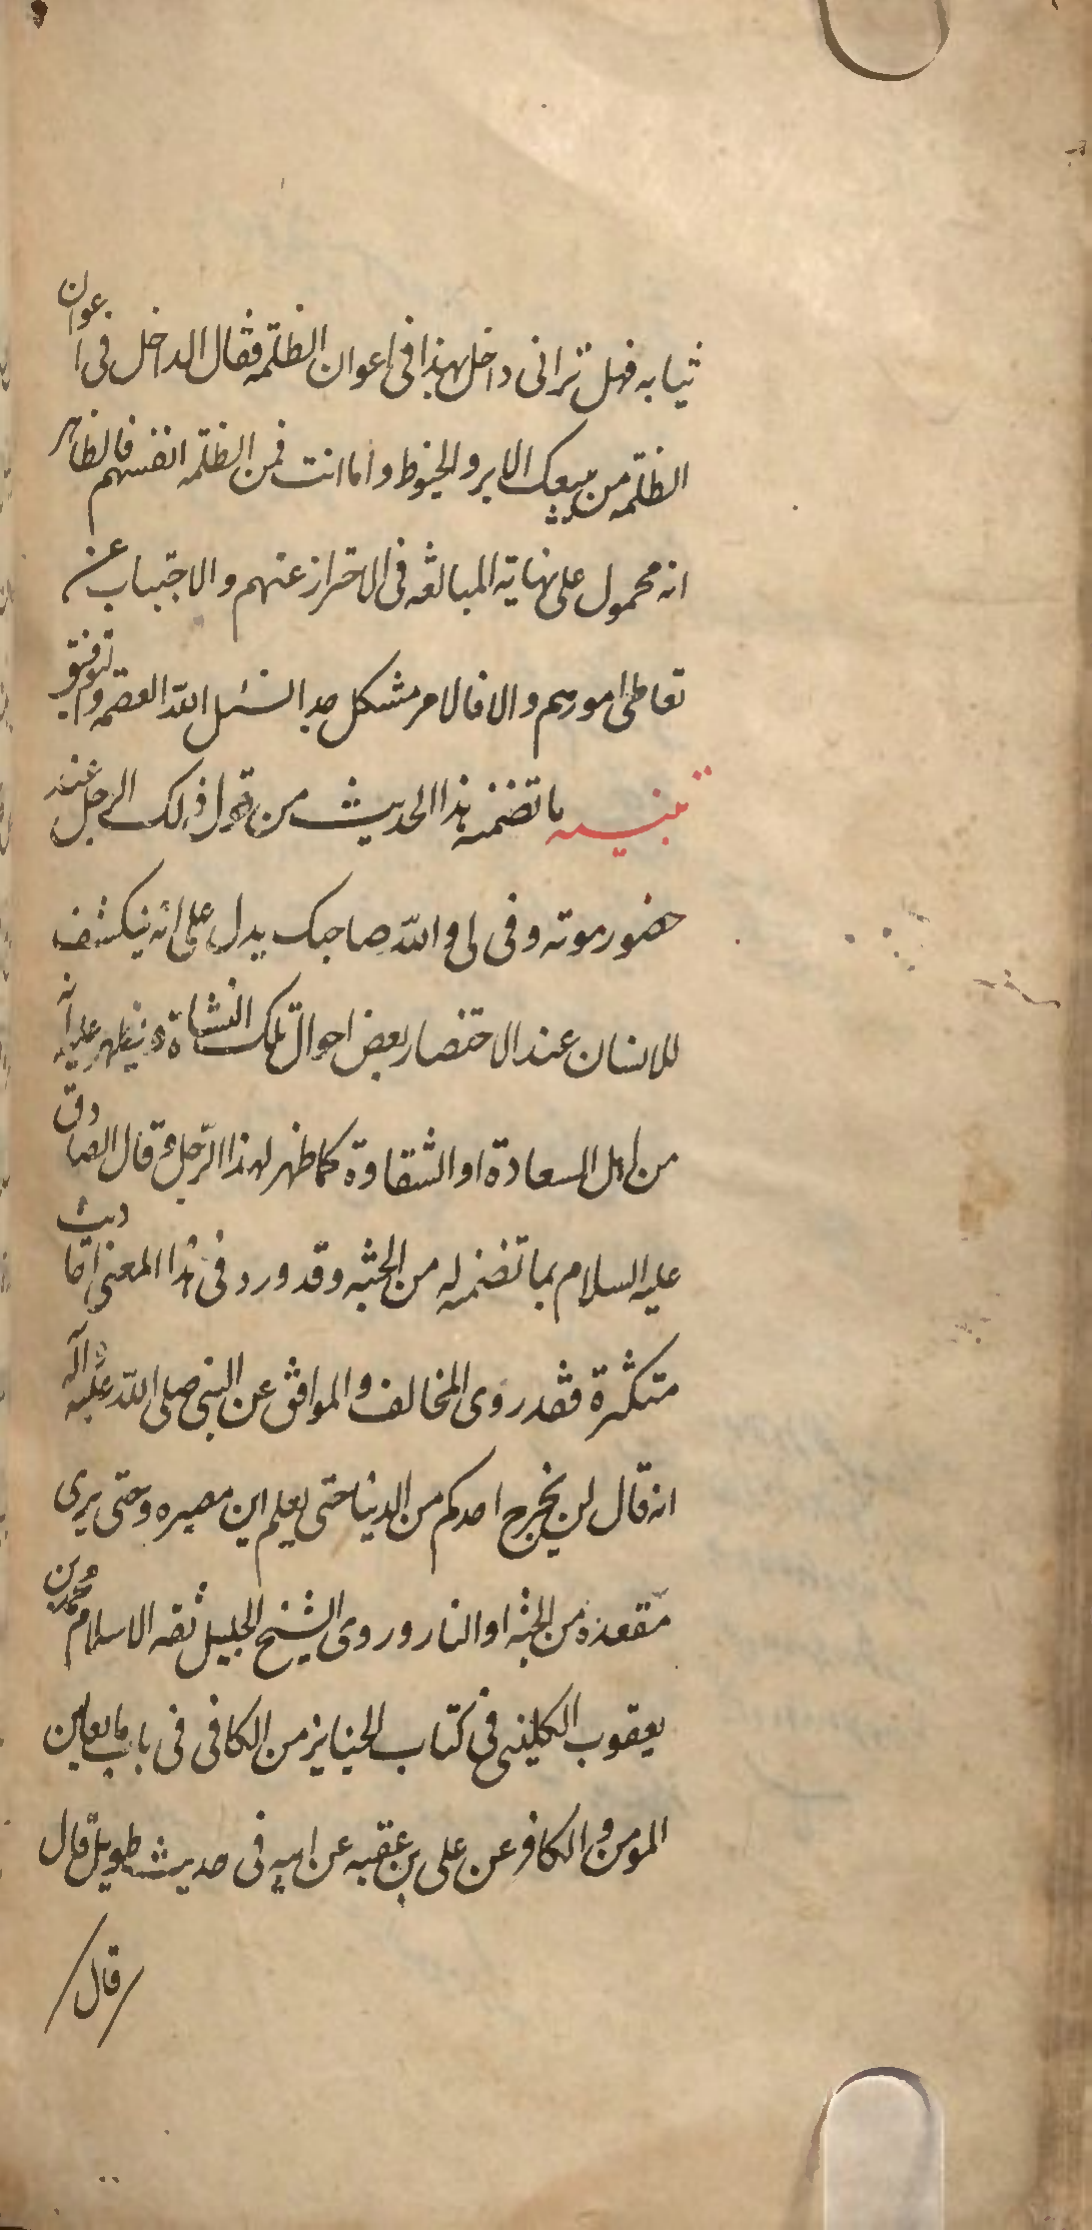 ثيابه فهل تراني داخل بهذا في اعوان الظلمة فقال الداخل في اعوان
الظلمة من يبيعك الابر والخيوط واما انت فمن الظلمة انفسهم فالظاهر
انه محمول على نهاية المبالغة في الاحتراز عنهم والاجتناب عن
تعاطى امورهم والا فالامر مشكل جدا نسئل الله العصمة والتوفيق
تنبيه ما تضمنه هذا الحديث من قول ذلك الرجل عند
حضور موته وفى لى والله صاحبك يدل على انه ينكشف
للانسان عند الاحتضار بعض احوال تلك النشاة ويظهر عليه انه
من اهل السعادة او الشقاوة كما ظهر لهذا الرجل وقال الصادق
عليه السلام بما تضمنه له من الجنة وقد ورد في هذا المعنى احاديث
متكثرة فقد روى المخالف والموافق عن النبي صلى الله عليه وآله
انه قال لن يخرج احدكم من الدنيا حتى يعلم اين مصيره وحتى يرى
مقعده من الجنة او النار وروى الشيخ الجليل ثقة الاسلام محمد بن
يعقوب الكليني في كتاب الجنايز من الكافي في باب ما يعاين
المومن والكافر عن على بن عقبه عن ابيه في حديث طويل قال
قال